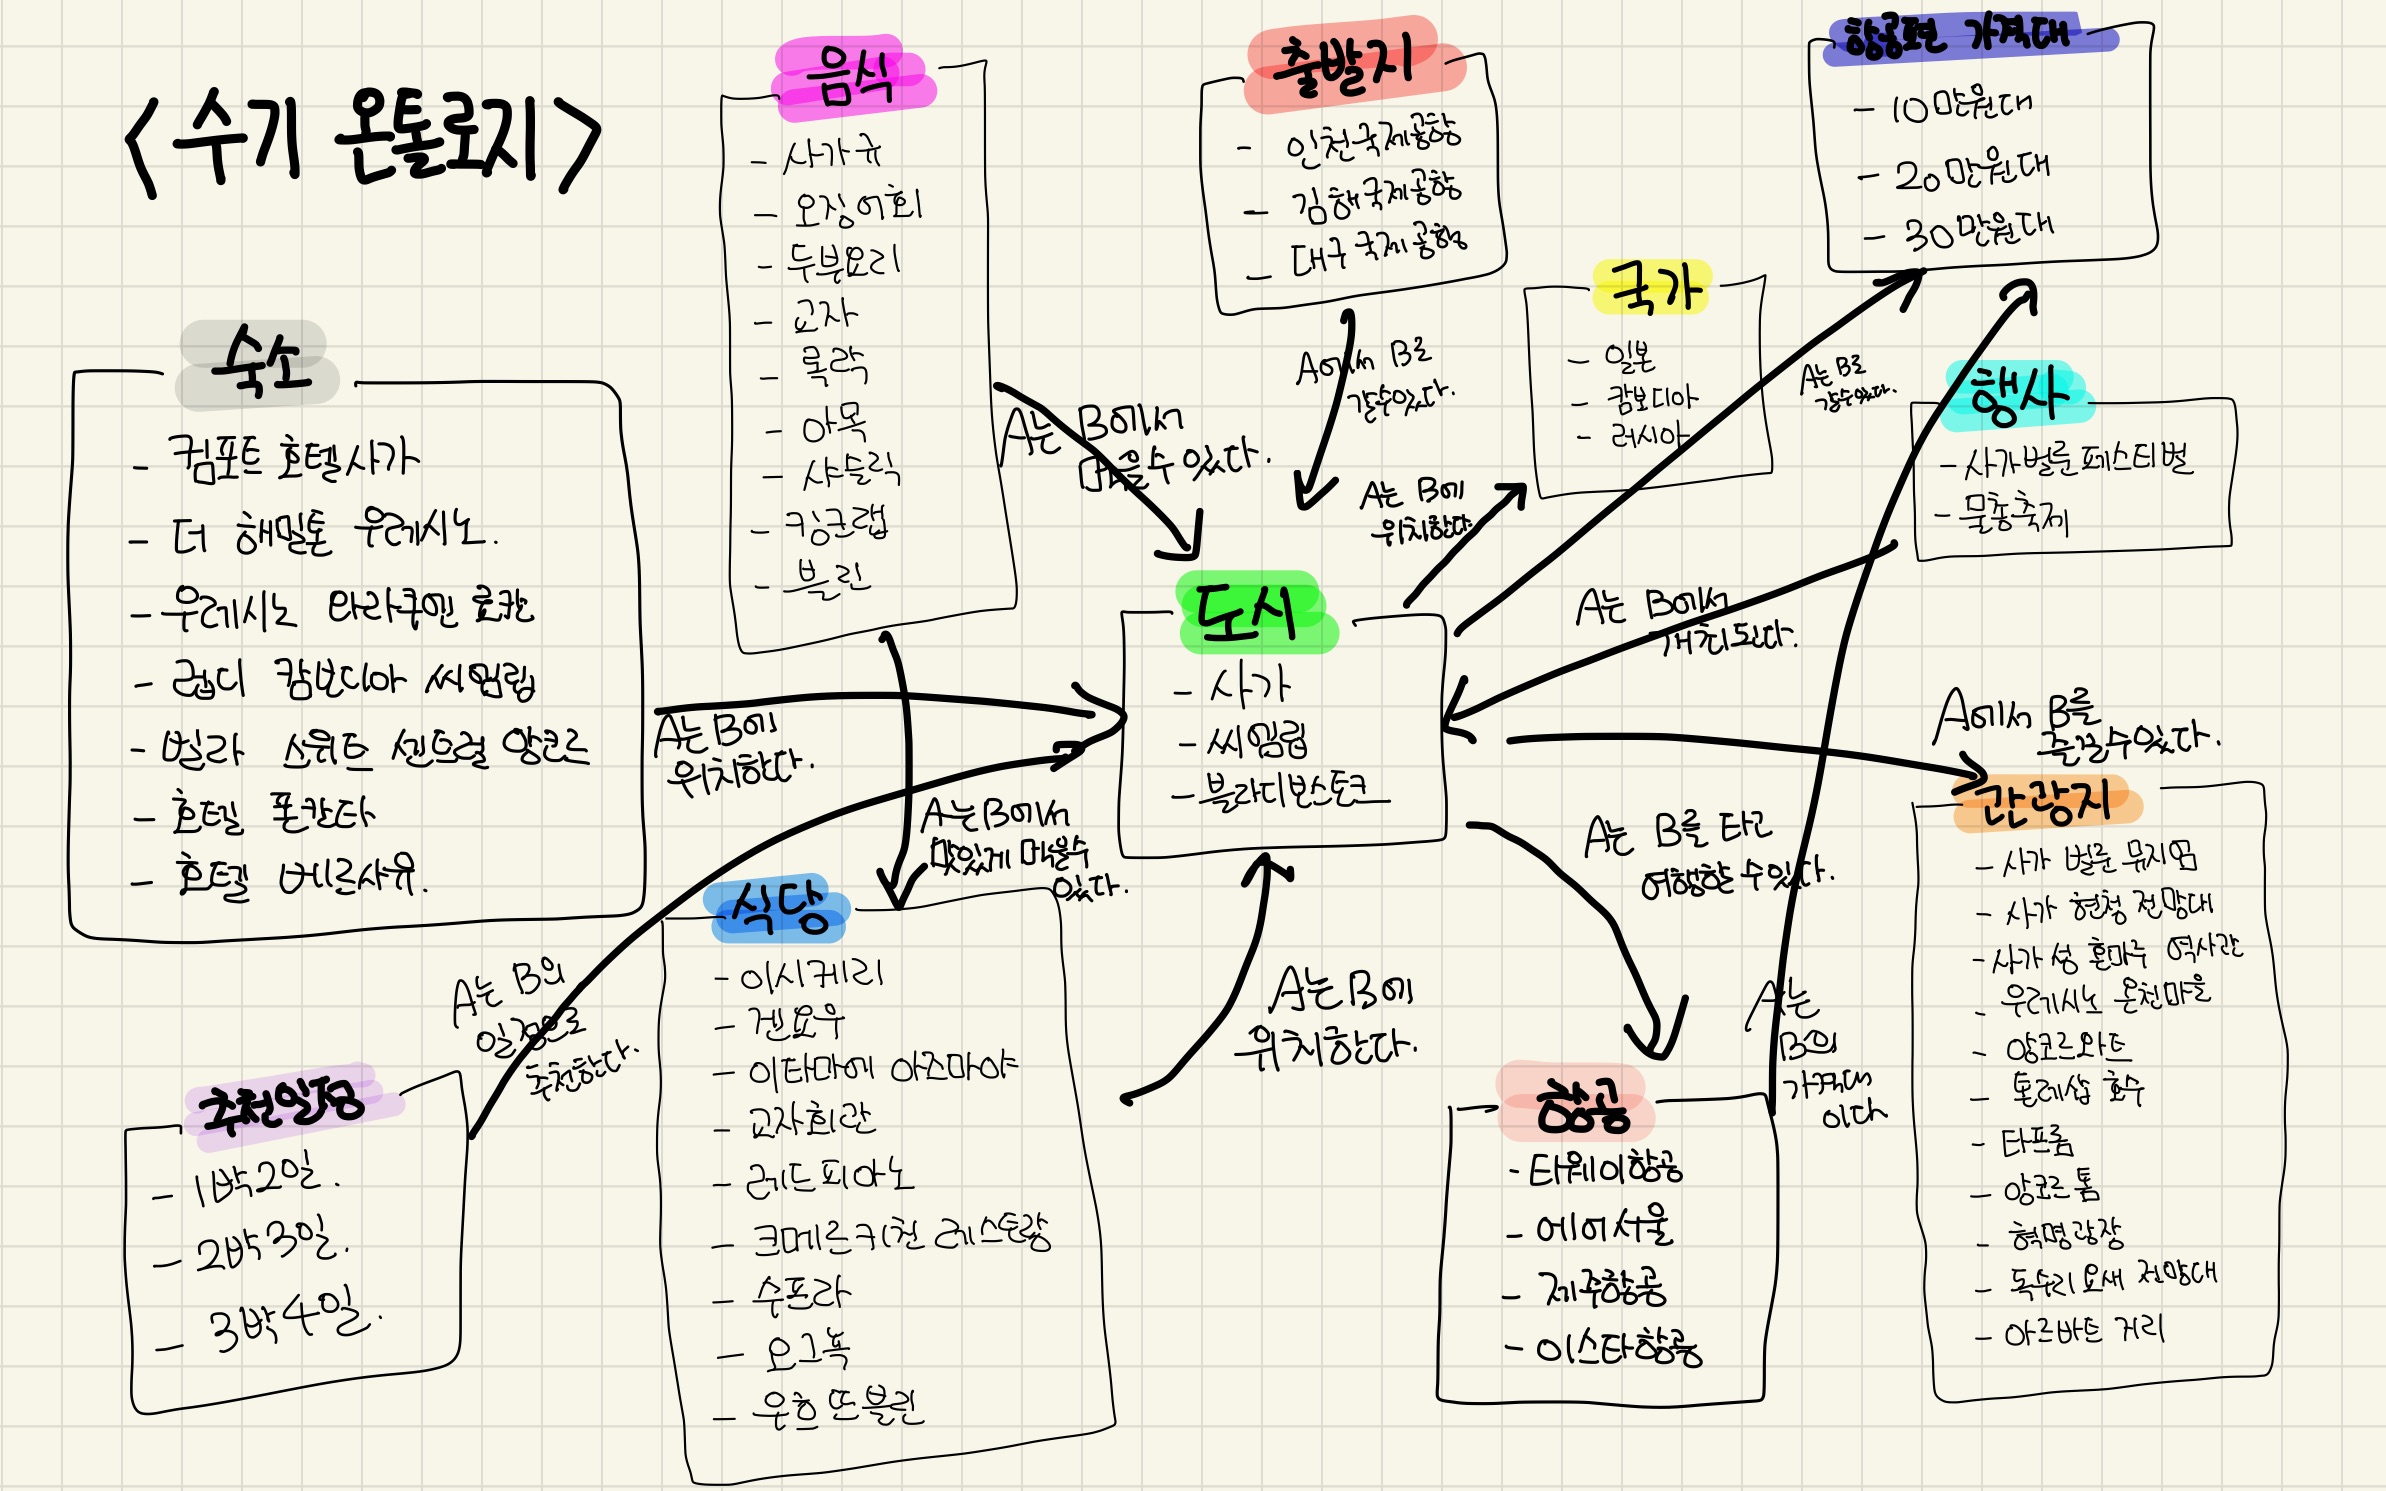 <수기 온톨로지>
음식
- 사가규
- 오징어회
- 두부요리
- 교자
- 록락
- 아목
- 샤슬릭
- 킹크랩
- 블린
출발지
- 인천국제공항
- 김해국제공항
- 대구국제공항
항공편 가격대
- 10만원대
- 20만원대
- 30만원대
국가
- 일본
- 캄보디아
- 러시아
행사
- 사가벌룬페스티벌
- 물총축제
숙소
- 컴포트 호텔사가
- 더 해밀톤 우레시노.
- 우레시노 와라쿠엔 료칸
- 랩디 캄보디아 씨엠립
- 빌라 스위트 센트럴 앙코르
- 호텔 폰칸타
- 호텔 베르사유.
도시
- 사가
- 씨엠립
- 블라디보스토크
A는 B에서
먹을수 있다.
A에서 B로
갈수있다.
A는 B에
위치한다
A는 B로
갈수있다.
A는 B에서
개최된다.
A에서 B를
즐길수있다.
A는 B에
위치한다.
A는 B에서
맛있게 먹을수
있다.
A는 B를 타고
여행할 수있다.
A는 B의
일정으로
추천한다.
A는 B에
위치한다.
A는
B의
가격대
이다
추천일정
- 1박2일.
- 2박3일.
- 3박4일.
식당
- 이시케리
- 겐요우
- 이타마에 아즈마야
- 교자회관
- 레드피아노
- 크메르키친 레스토랑
- 수프라
- 오그뇩
- 우흐뜨블린
항공
- 티웨이항공
- 에어서울
- 제주항공
- 이스타항공
관광지
- 사가 벌룬 뮤지엄
- 사가 현청 전망대
- 사가성 혼마루 역사관
- 우레시노 온천마을
- 앙코르와트
- 톤레삽 호수
- 타프롬
- 앙코르톰
- 혁명광장
- 독수리요새 전망대
- 아르바트 거리